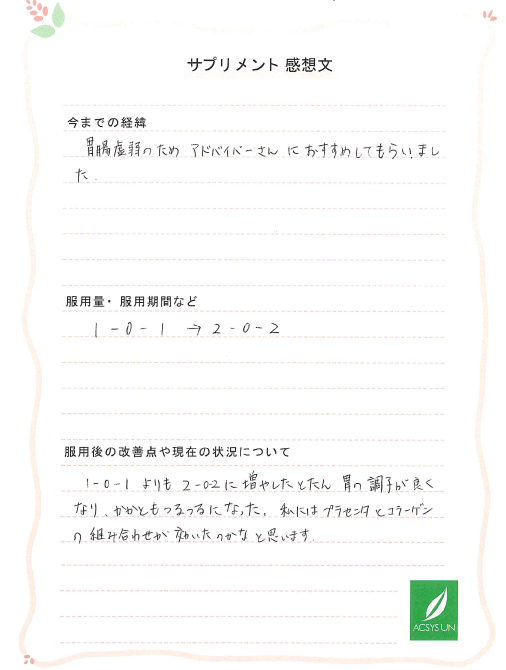 サプリメント 感想文
今までの経緯
胃腸虚弱のため アドバイバーさん におすすめしてもらいまし
た.
服用量・服用期間など
1-0-1 → 2-0-2
服用後の改善点や現在の状況について
1-0-1 よりも 2-0-2に 増やしたとたん 胃の調子が良く
なり、かかともつるつるになった. 私にはプラセンタとコラーゲン
の組み合わせが効いたのかなと思います.
ACSYS UN